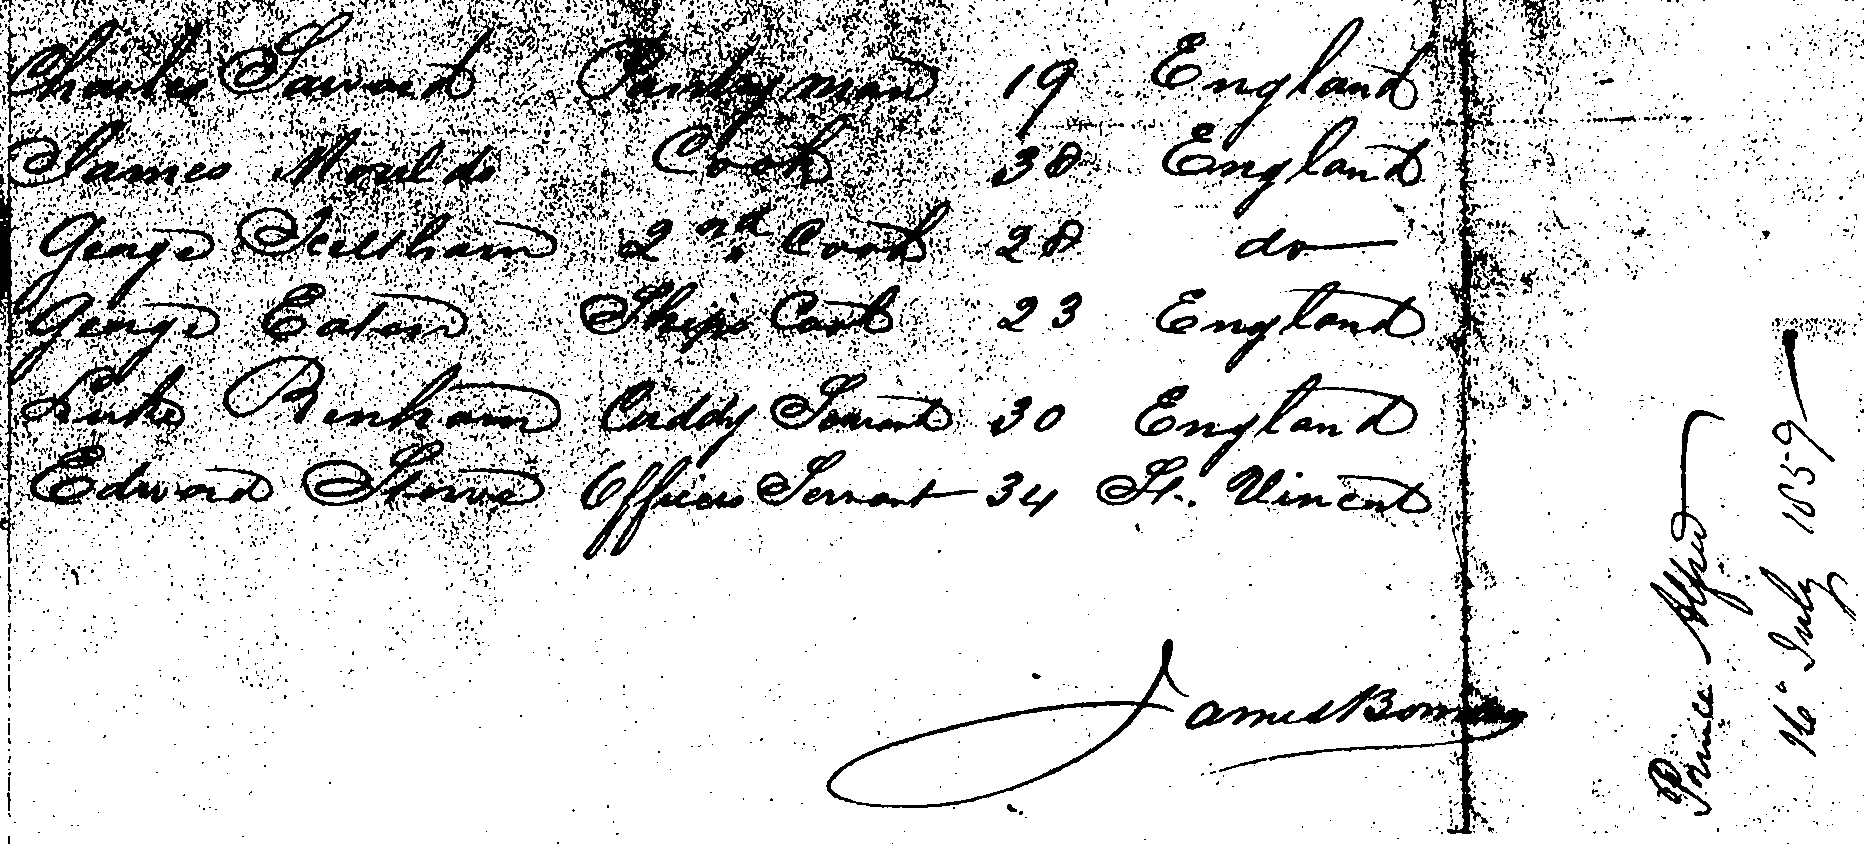 Charles Saward Pantryman 19 England
James Moulds Cook 38 England
George Feltham 2nd Cook 28 do
George Eaton Ship's Cook 23 England
Luke Benham Cuddy Servant 30 England
Edward Stowe Officers Servant 34 St. Vincent
James
Prince Alfred
16" July 1859